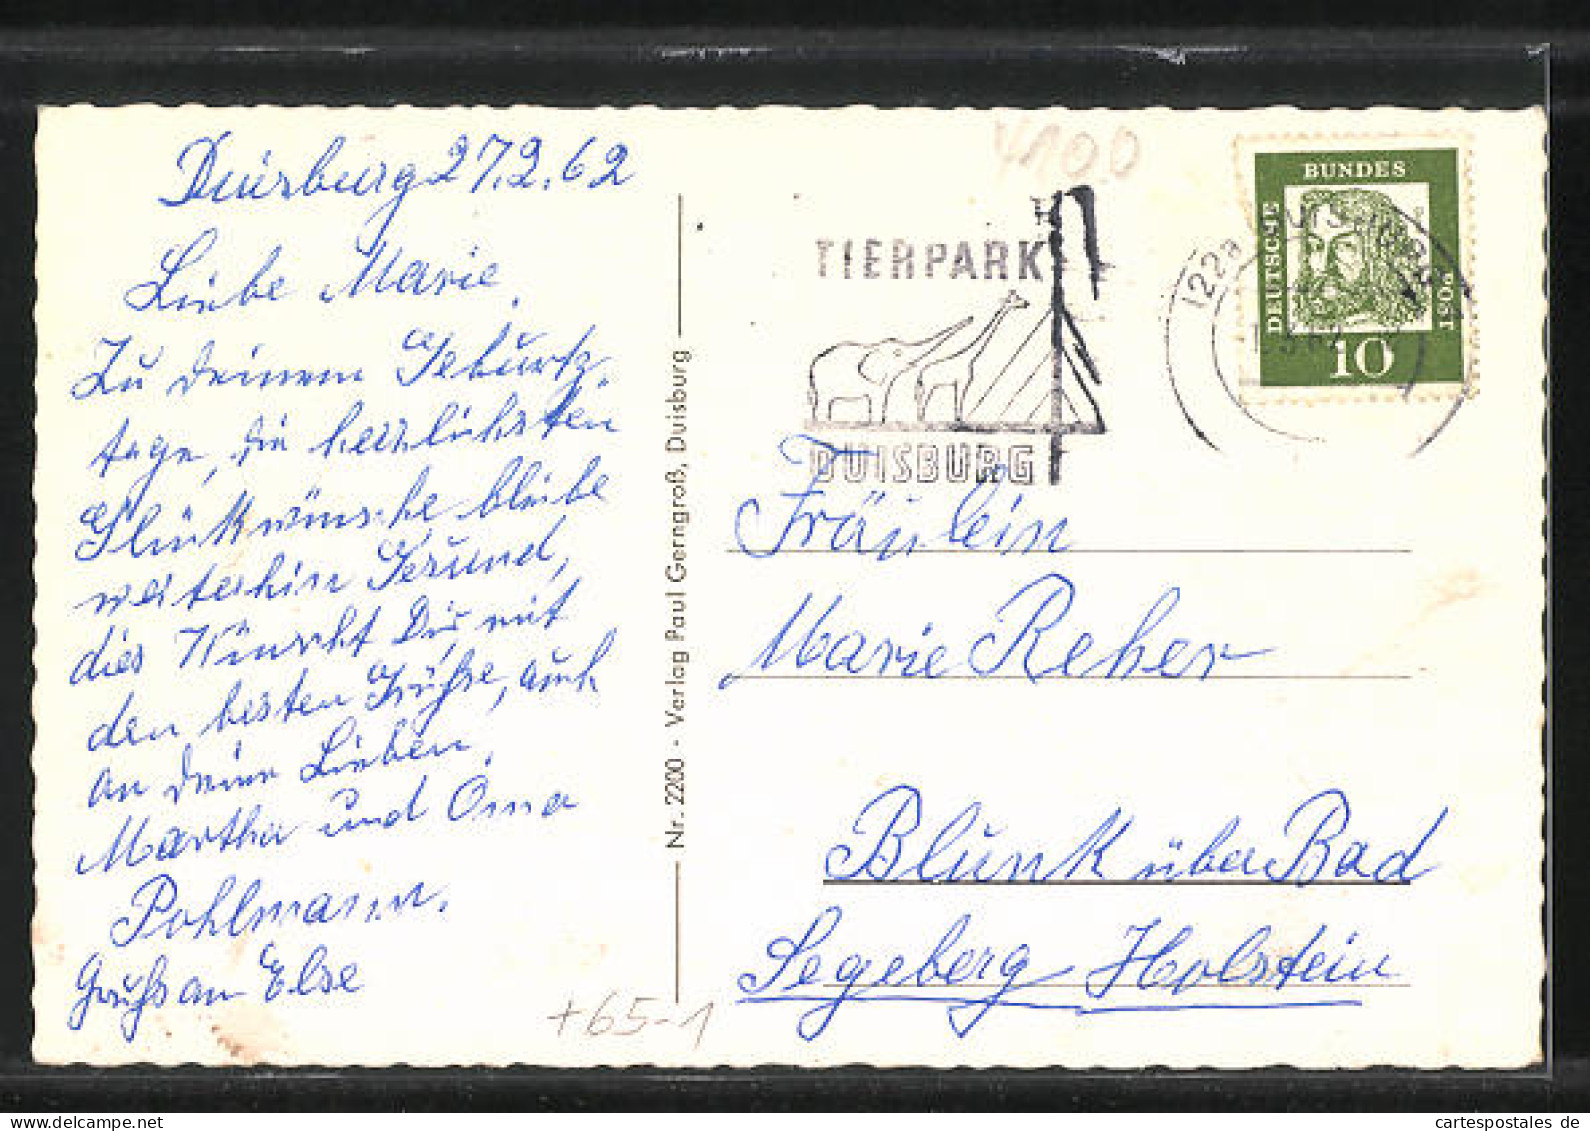 Duisburg 27.2.62
Liebe Marie.
Zu deinem Geburts-
tage, die herzlichsten
Glückwünsche bleibe
weiterhin Gesund,
dies Wünscht Dir mit
den besten Grüße, auch
an deine Lieben,
Martha und Oma
Pohlmann.
Gruß an Else
Nr. 2200 - Verlag Paul Gerngroß, Duisburg
+65-1
TIERPARK
DUISBURG
(22a) DUISBURG
DEUTSCHE
BUNDES
POST
10
Fräulein
Marie Reher
Blunk über Bad
Segeberg Holstein
cartespostales de